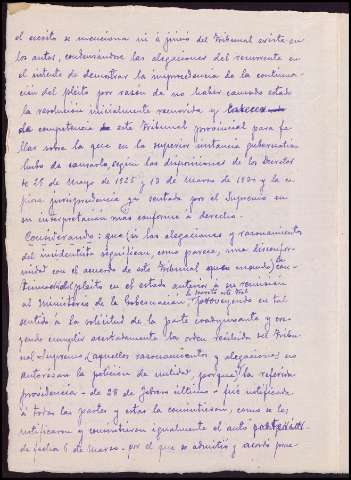 el escrito se menciona ni á juicio del Tribunal existe en
los autos, condensándose las alegaciones del recurrente en
el intento de demostrar la improcedencia de la continua-
ción del pleito por razón de no haber causado estado
la resolución inicialmente recurrida y
de competencia de este Tribunal provincial para fa-
llar sobre la que en la superior instancia gubernativa
hubo de causarlo, según las disposiciones de los Decretos
de 25 de Mayo de 1925 y 13 de Marzo de 1934 y la co-
piosa jurisprudencia ya sentada por el Supremo en
su interpretación más conforme á derecho.
Considerando: que si las alegaciones y razonamientos
del incidentista significan, como parece, una disconfor-
midad con el acuerdo de este Tribunal que mandó la con-
tinuación del pleito en el estado anterior á su remisión
al Ministerio de la Gobernación, proveyendo en tal
sentido á la solicitud de la parte coadyuvante y cre-
yendo cumplir acertadamente la orden recibida del Tribu-
nal Supremo, aquellos razonamientos y alegaciones no
autorizan la petición de nulidad, porque la referida
providencia - de 28 de Febrero último - fué notificada
á todas las partes y estas la consintieron, como se les
notificaron y consintieron igualmente el auto
de fecha 6 de Marzo - por el que se admitió y acordó prac-